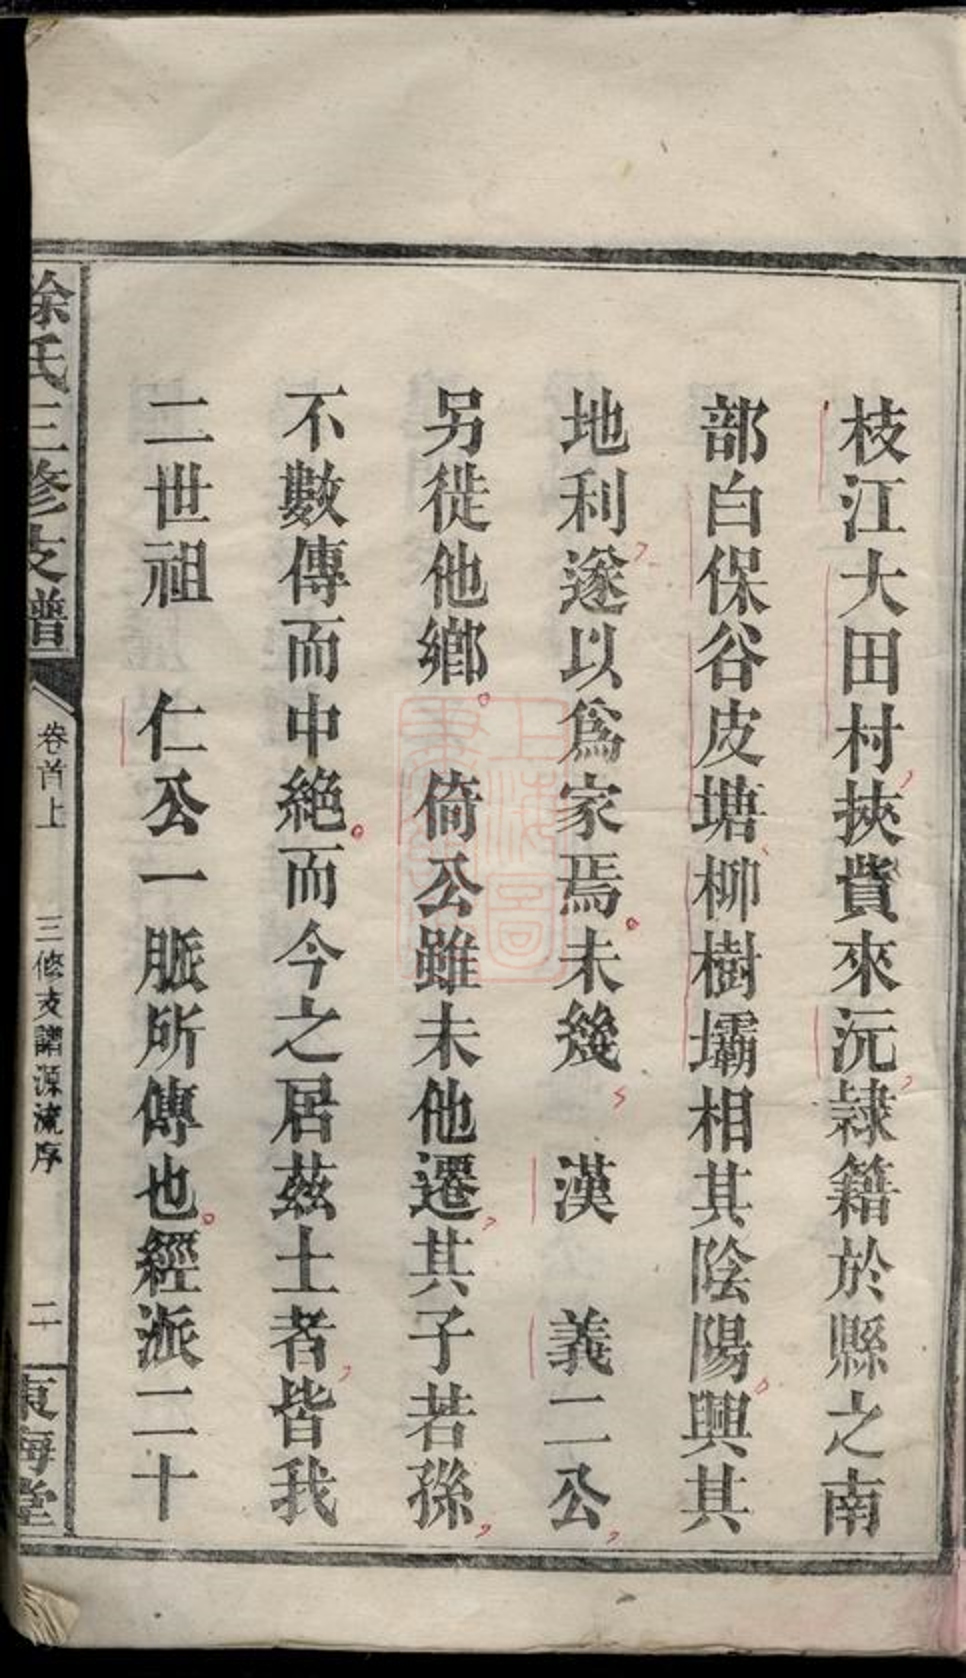 枝江大田村挾貲來沅隷籍於縣之南
部白保谷皮塘柳樹壩相其陰陽興其
地利遂以爲家焉未幾　漢　義二公
另徙他鄉　倚公雖未他遷其子若孫
不數傳而中絶而今之居茲士者皆我
二世祖　仁公一脈所傳也經派二十
徐氏三修支譜
卷首上
三修支譜源流序
二
東海堂
上海圖